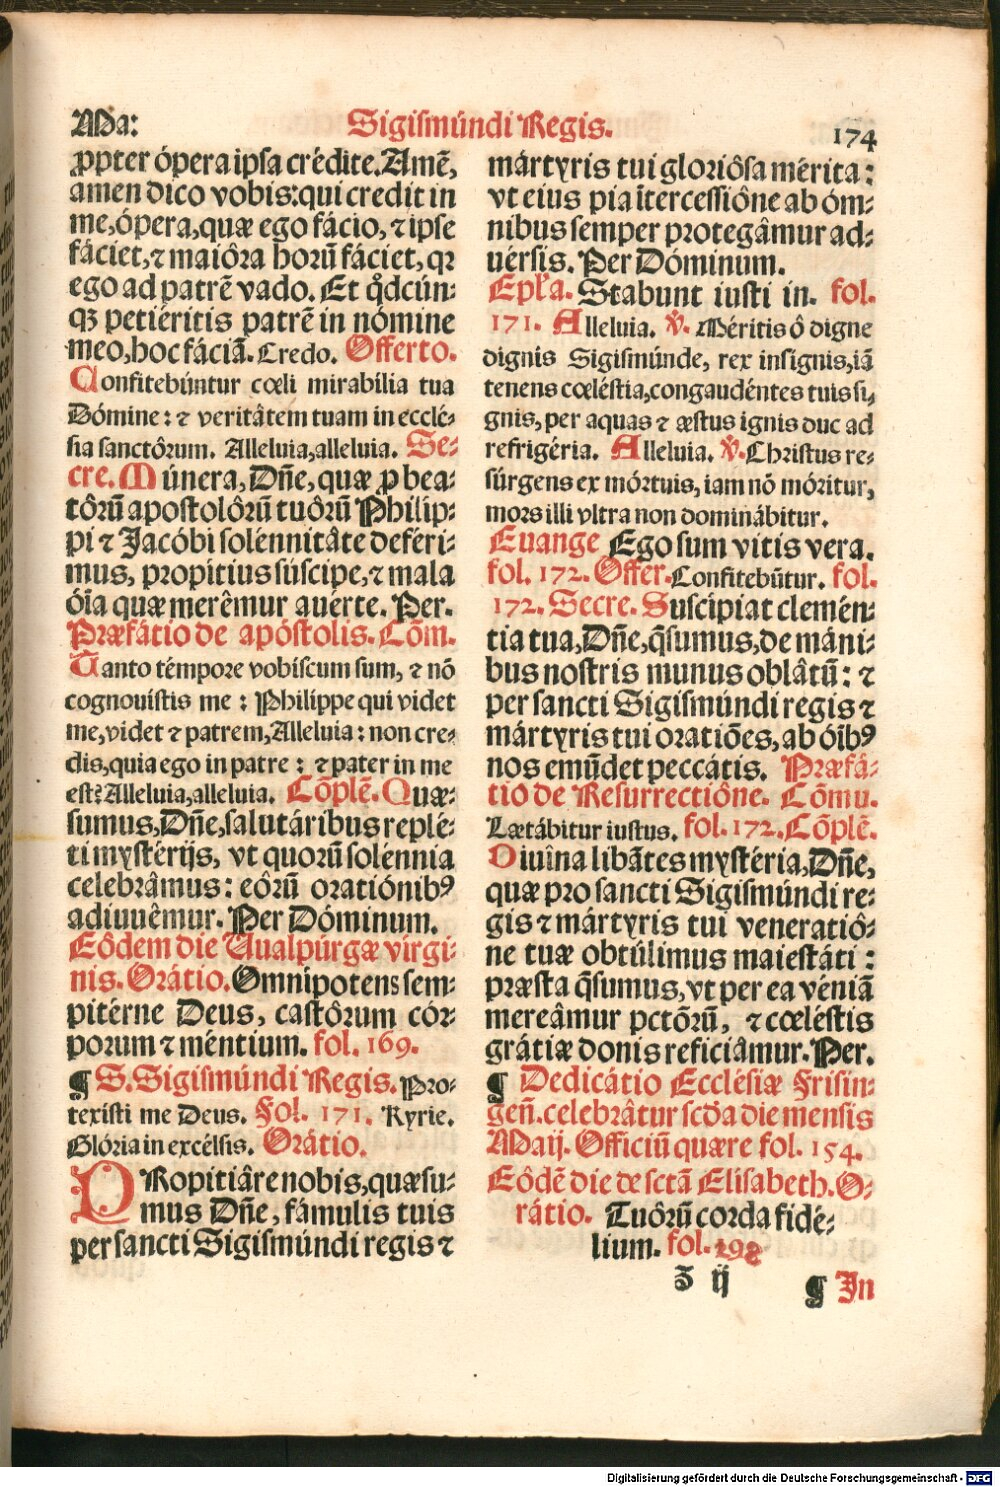 Ma:
Sigismúndi Regis.
174
ꝓpter ópera ipsa crédite. Amẽ,
amen dico vobis: qui credit in
me, ópera, quæ ego fácio, ⁊ ipse
fáciet, ⁊ maiôra horũ fáciet, qꝛ
ego ad patrẽ vado. Et qd̾cún⸗
qꝫ petiéritis patrẽ in nómine
meo, hoc fáciã. Credo. Offerto.
Confitebúntur cœli mirabília tua
Dómine: ⁊ veritâtem tuam in ecclé⸗
sia sanctôrum. Alleluia, alleluia. Se⸗
cre. Múnera, Dñe, quæ ꝓ bea⸗
tôrũ apostolôrũ tuôrũ Philíp⸗
pi ⁊ Jacóbi solennitâte deféri⸗
mus, propítius súscipe, ⁊ mala
óĩa quæ merêmur auérte. Per.
Præfátio de apóstolis. Cõm.
Tanto témpore vobíscum sum, ⁊ nõ
cognouístis me: Philíppe qui videt
me, videt ⁊ patrem, Alleluia: non cre⸗
dis, quia ego in patre: ⁊ pater in me
est? Alleluia, alleluia. Cõplẽ. Quæ⸗
sumus, Dñe, salutáribus replé⸗
ti mystérijs, vt quorũ solénnia
celebrâmus: eôrũ oratiónibꝰ
adiuuêmur. Per Dóminum.
Eôdem die Uualpúrgæ vírgi⸗
nis. Orátio. Omnípotens sem⸗
pitérne Deus, castôrum cór⸗
porum ⁊ méntium. fol. 169.
¶ S. Sigismúndi Regis. Pro⸗
texísti me Deus. Fol. 171. Kyrie.
Glória in excélsis. Orátio.
PRopitiâre nobis, quæsu⸗
mus Dñe, fámulis tuis
per sancti Sigismúndi regis ⁊
mártyris tui gloriôsa mérita:
vt eius pia ĩtercessiône ab óm⸗
nibus semper protegâmur ad⸗
uérsis. Per Dóminum.
Epľa. Stabunt iusti in. fol.
171. Alleluia. ℣. Méritis ô digne
dignis Sigismúnde, rex insígnis, iã
tenens cœléstia, congaudéntes tuis si⸗
gnis, per aquas ⁊ æstus ignis duc ad
refrigéria. Alleluia. ℣. Christus re⸗
súrgens ex mórtuis, iam nõ móritur,
mors illi vltra non dominábitur.
Euange Ego sum vitis vera.
fol. 172. Offer. Confitebũtur. fol.
172. Secre. Suscípiat clemén⸗
tia tua, Dñe, q̃sumus, de máni⸗
bus nostris munus oblâtũ: ⁊
per sancti Sigismúndi regis ⁊
mártyris tui oratiões, ab óĩbꝰ
nos emũdet peccátis. Præfá⸗
tio de Resurrectiône. Cõmu.
Lætábitur iustus. fol. 172. Cõplẽ.
Diuîna libãtes mystéria, Dñe,
quæ pro sancti Sigismúndi re⸗
gis ⁊ mártyris tui veneratiô⸗
ne tuæ obtúlimus maiestáti:
præsta q̃sumus, vt per ea véniã
mereâmur pctõrũ, ⁊ cœléstis
grátiæ donis reficiâmur. Per.
¶ Dedicátio Ecclésiæ Frisin⸗
geñ. celebrâtur scďa die mensis
Maij. Officiũ quære fol. 154.
Eôdẽ die de sctã Elisabeth. O⸗
rátio. Tuôrũ corda fidé⸗
lium. fol. 298
ʒ ij
¶ In
Digitalisierung gefördert durch die Deutsche Forschungsgemeinschaft - DFG